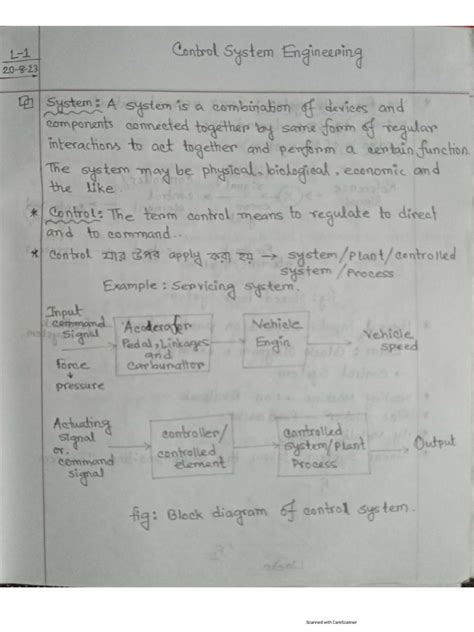 L-1
20-8-23
Control System Engineering
System: A system is a combination of devices and
components connected together by some form of regular
interactions to act together and perform a certain function
The system may be physical, biological, economic and
the like.
* Control: The term control means to regulate to direct
and to command..
* Control যার উপর apply করা হয় → system/plant/controlled
system/Process
Example: Servicing system.
Input
command
signal
Force
pressure
Accelerator
Pedal, Linkages
and
Carburattor
Vehicle
Engin
Vehicle
speed
Actuating
signal
or
command
signal
controller/
controlled
element
controlled
system/plant
Process
Output
fig: Block diagram of control system.
Scanned with CamScanner